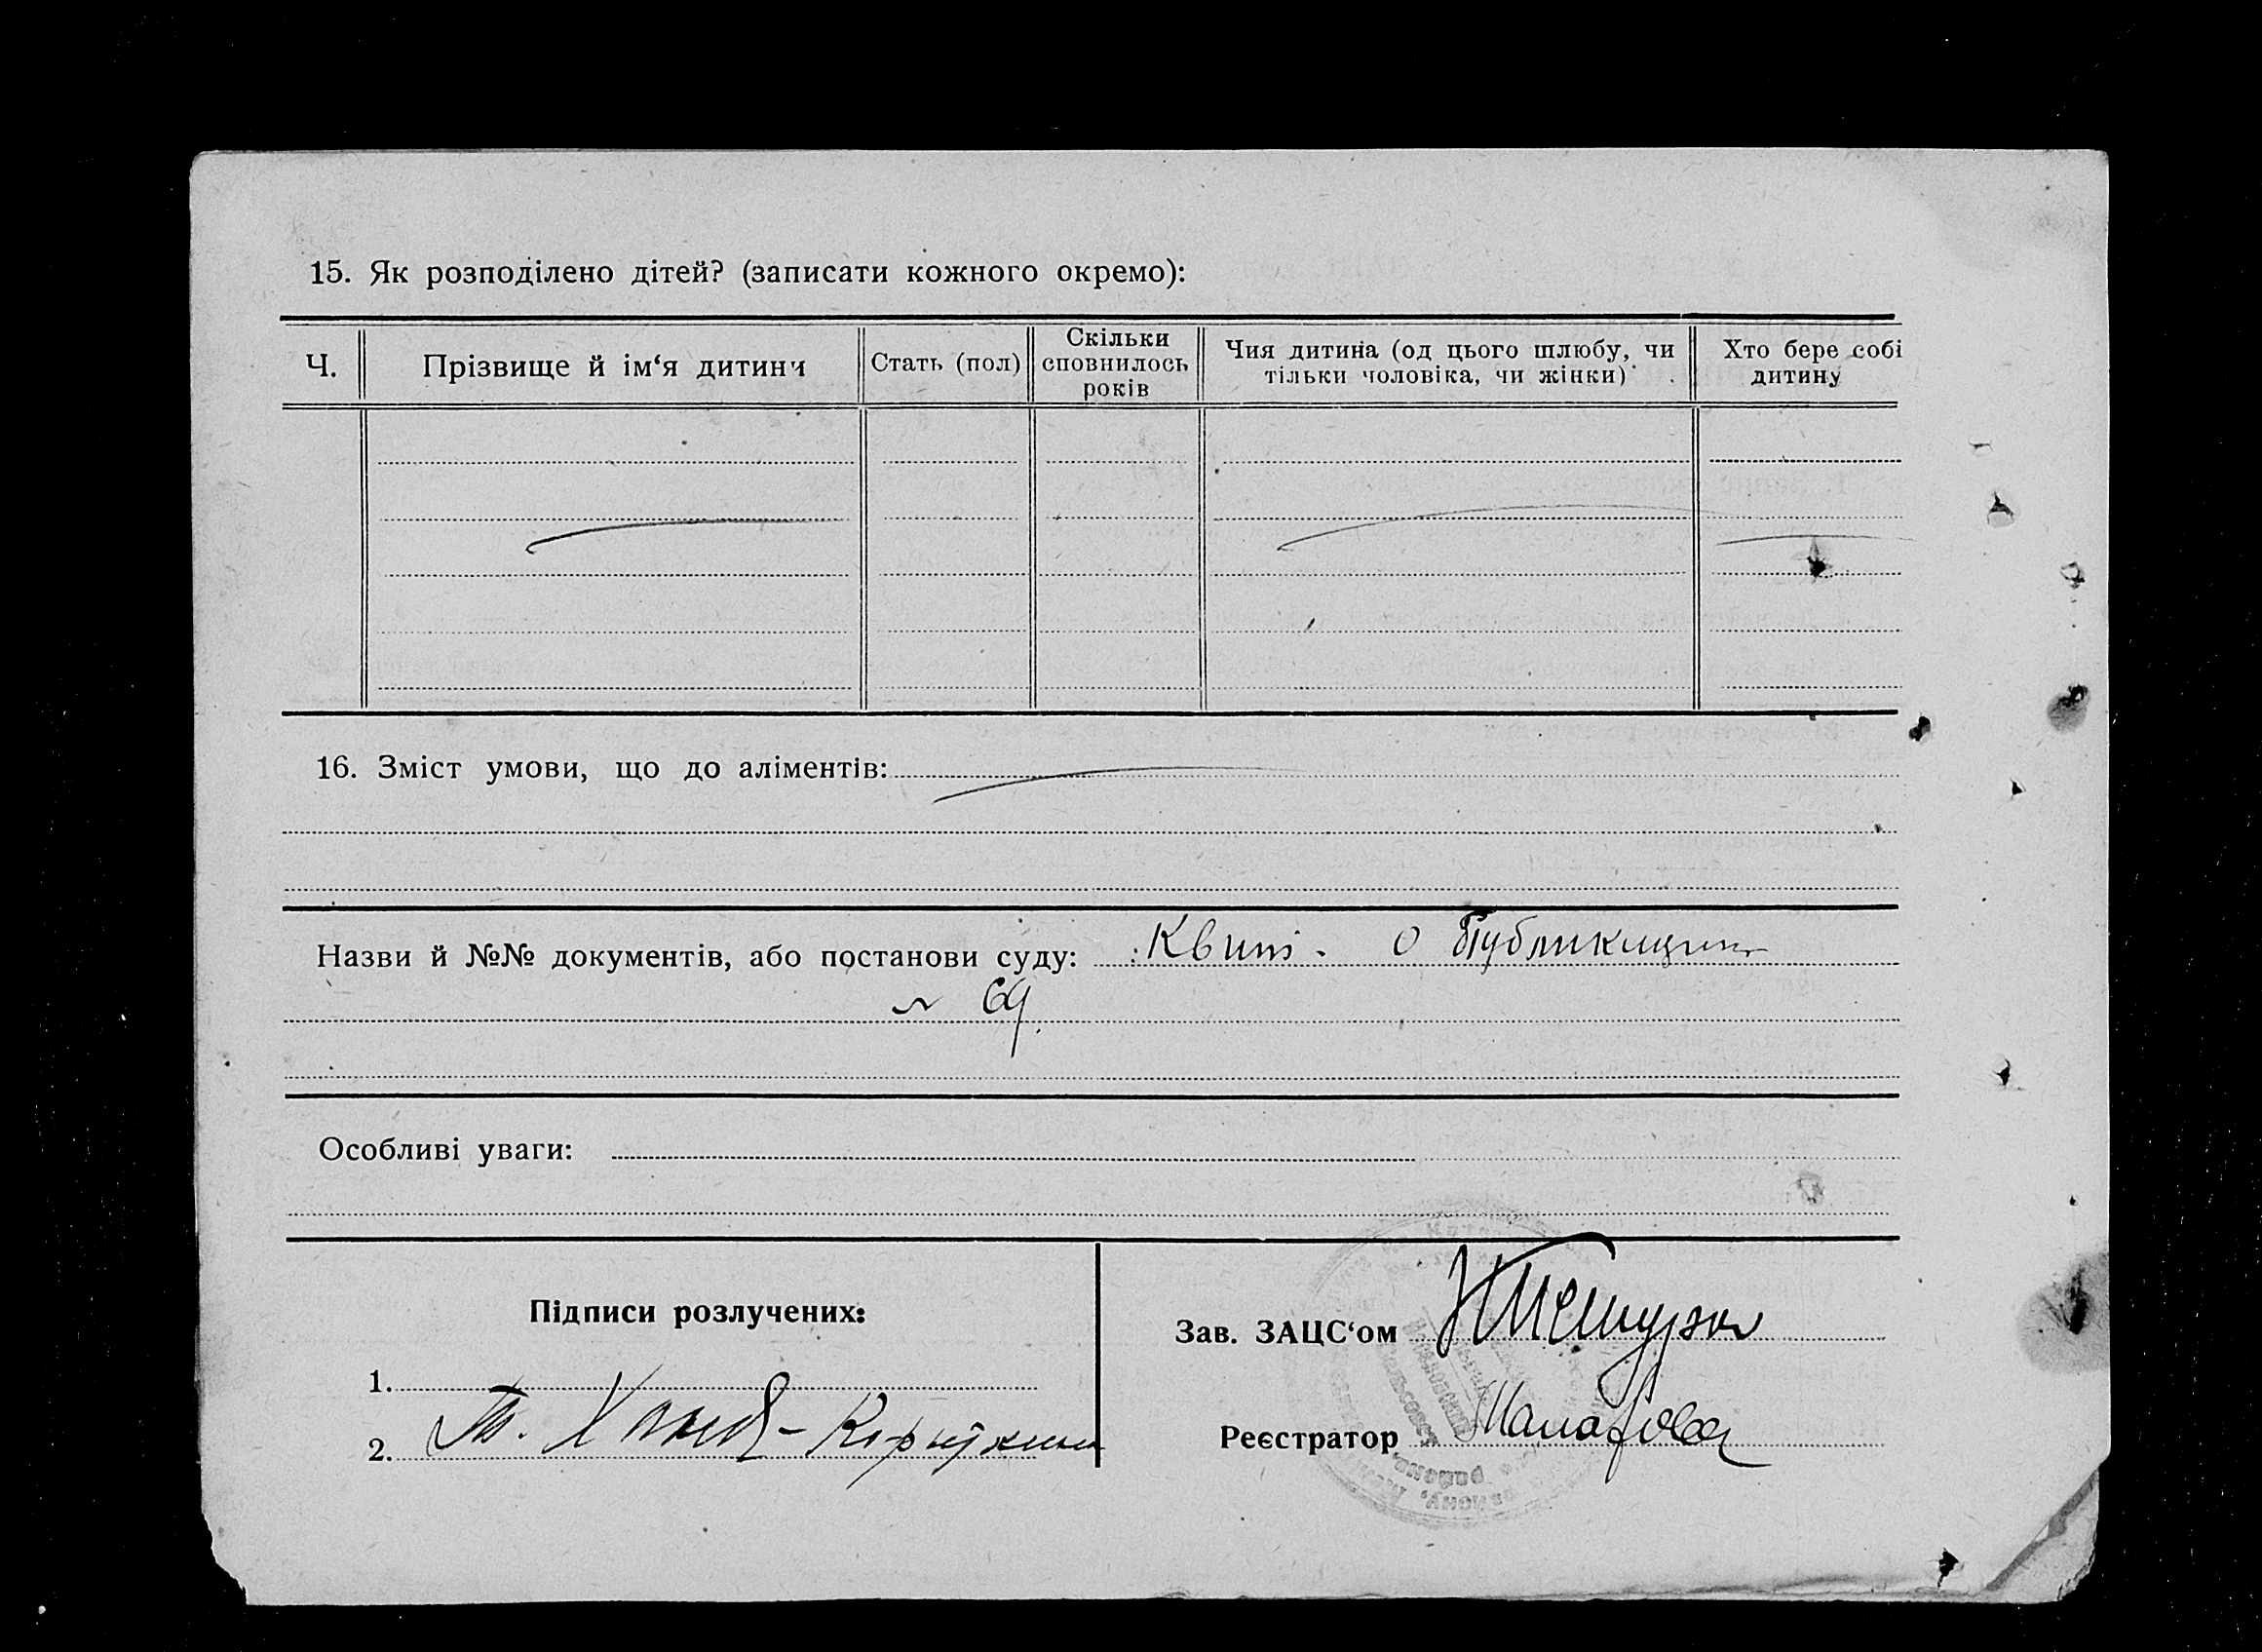 15. Як розподілено дітей? (записати кожного окремо):
Ч.
Прізвище й ім‘я дитини
Стать (пол)
Скільки
сповнилось
років
Чия дитина (од цього шлюбу, чи
тільки чоловіка, чи жінки)
Хто бере собі
дитину
16. Зміст умови, що до аліментів:
Назви й №№ документів, або постанови суду: Квит. о Публикации
№ 69.
Особливі уваги:
Підписи розлучених:
1.
2.
Зав. ЗАЦС‘ом
Реєстратор